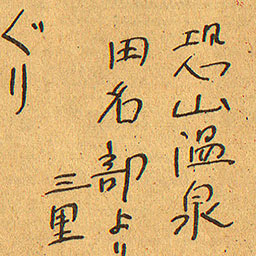 恐山温泉
田名部より
三里
ぐり